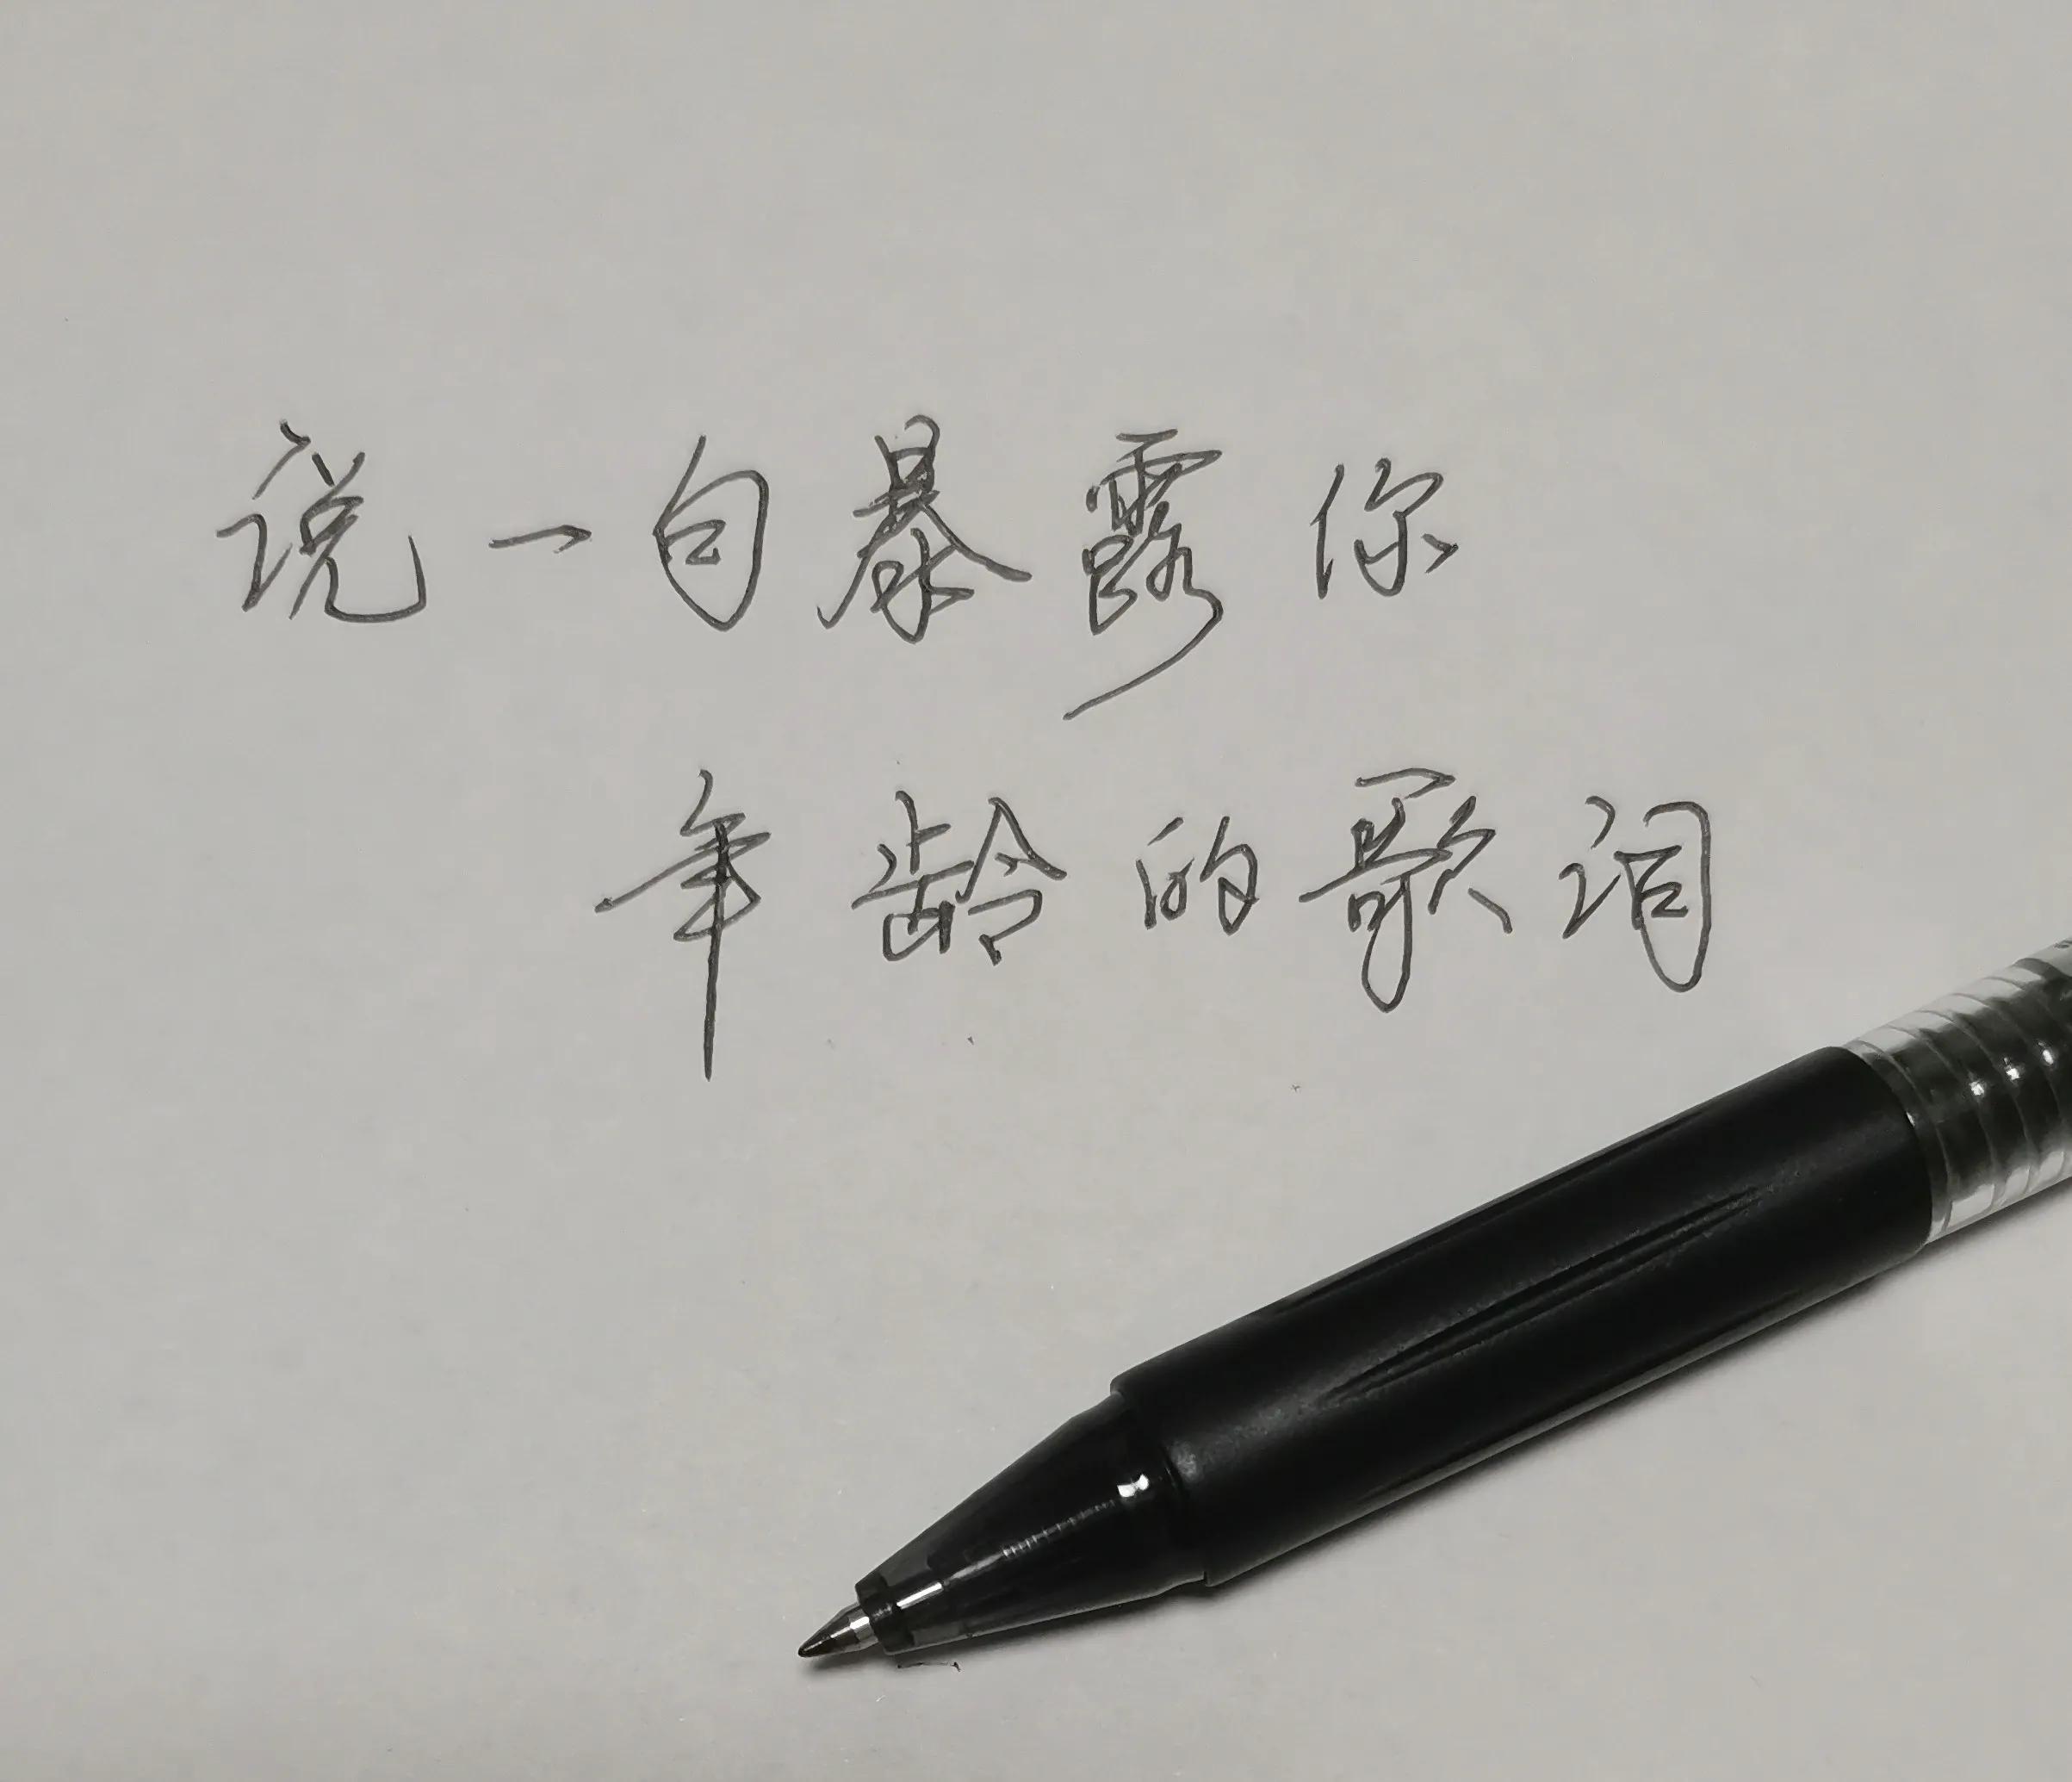 说一句暴露你
年龄的歌词